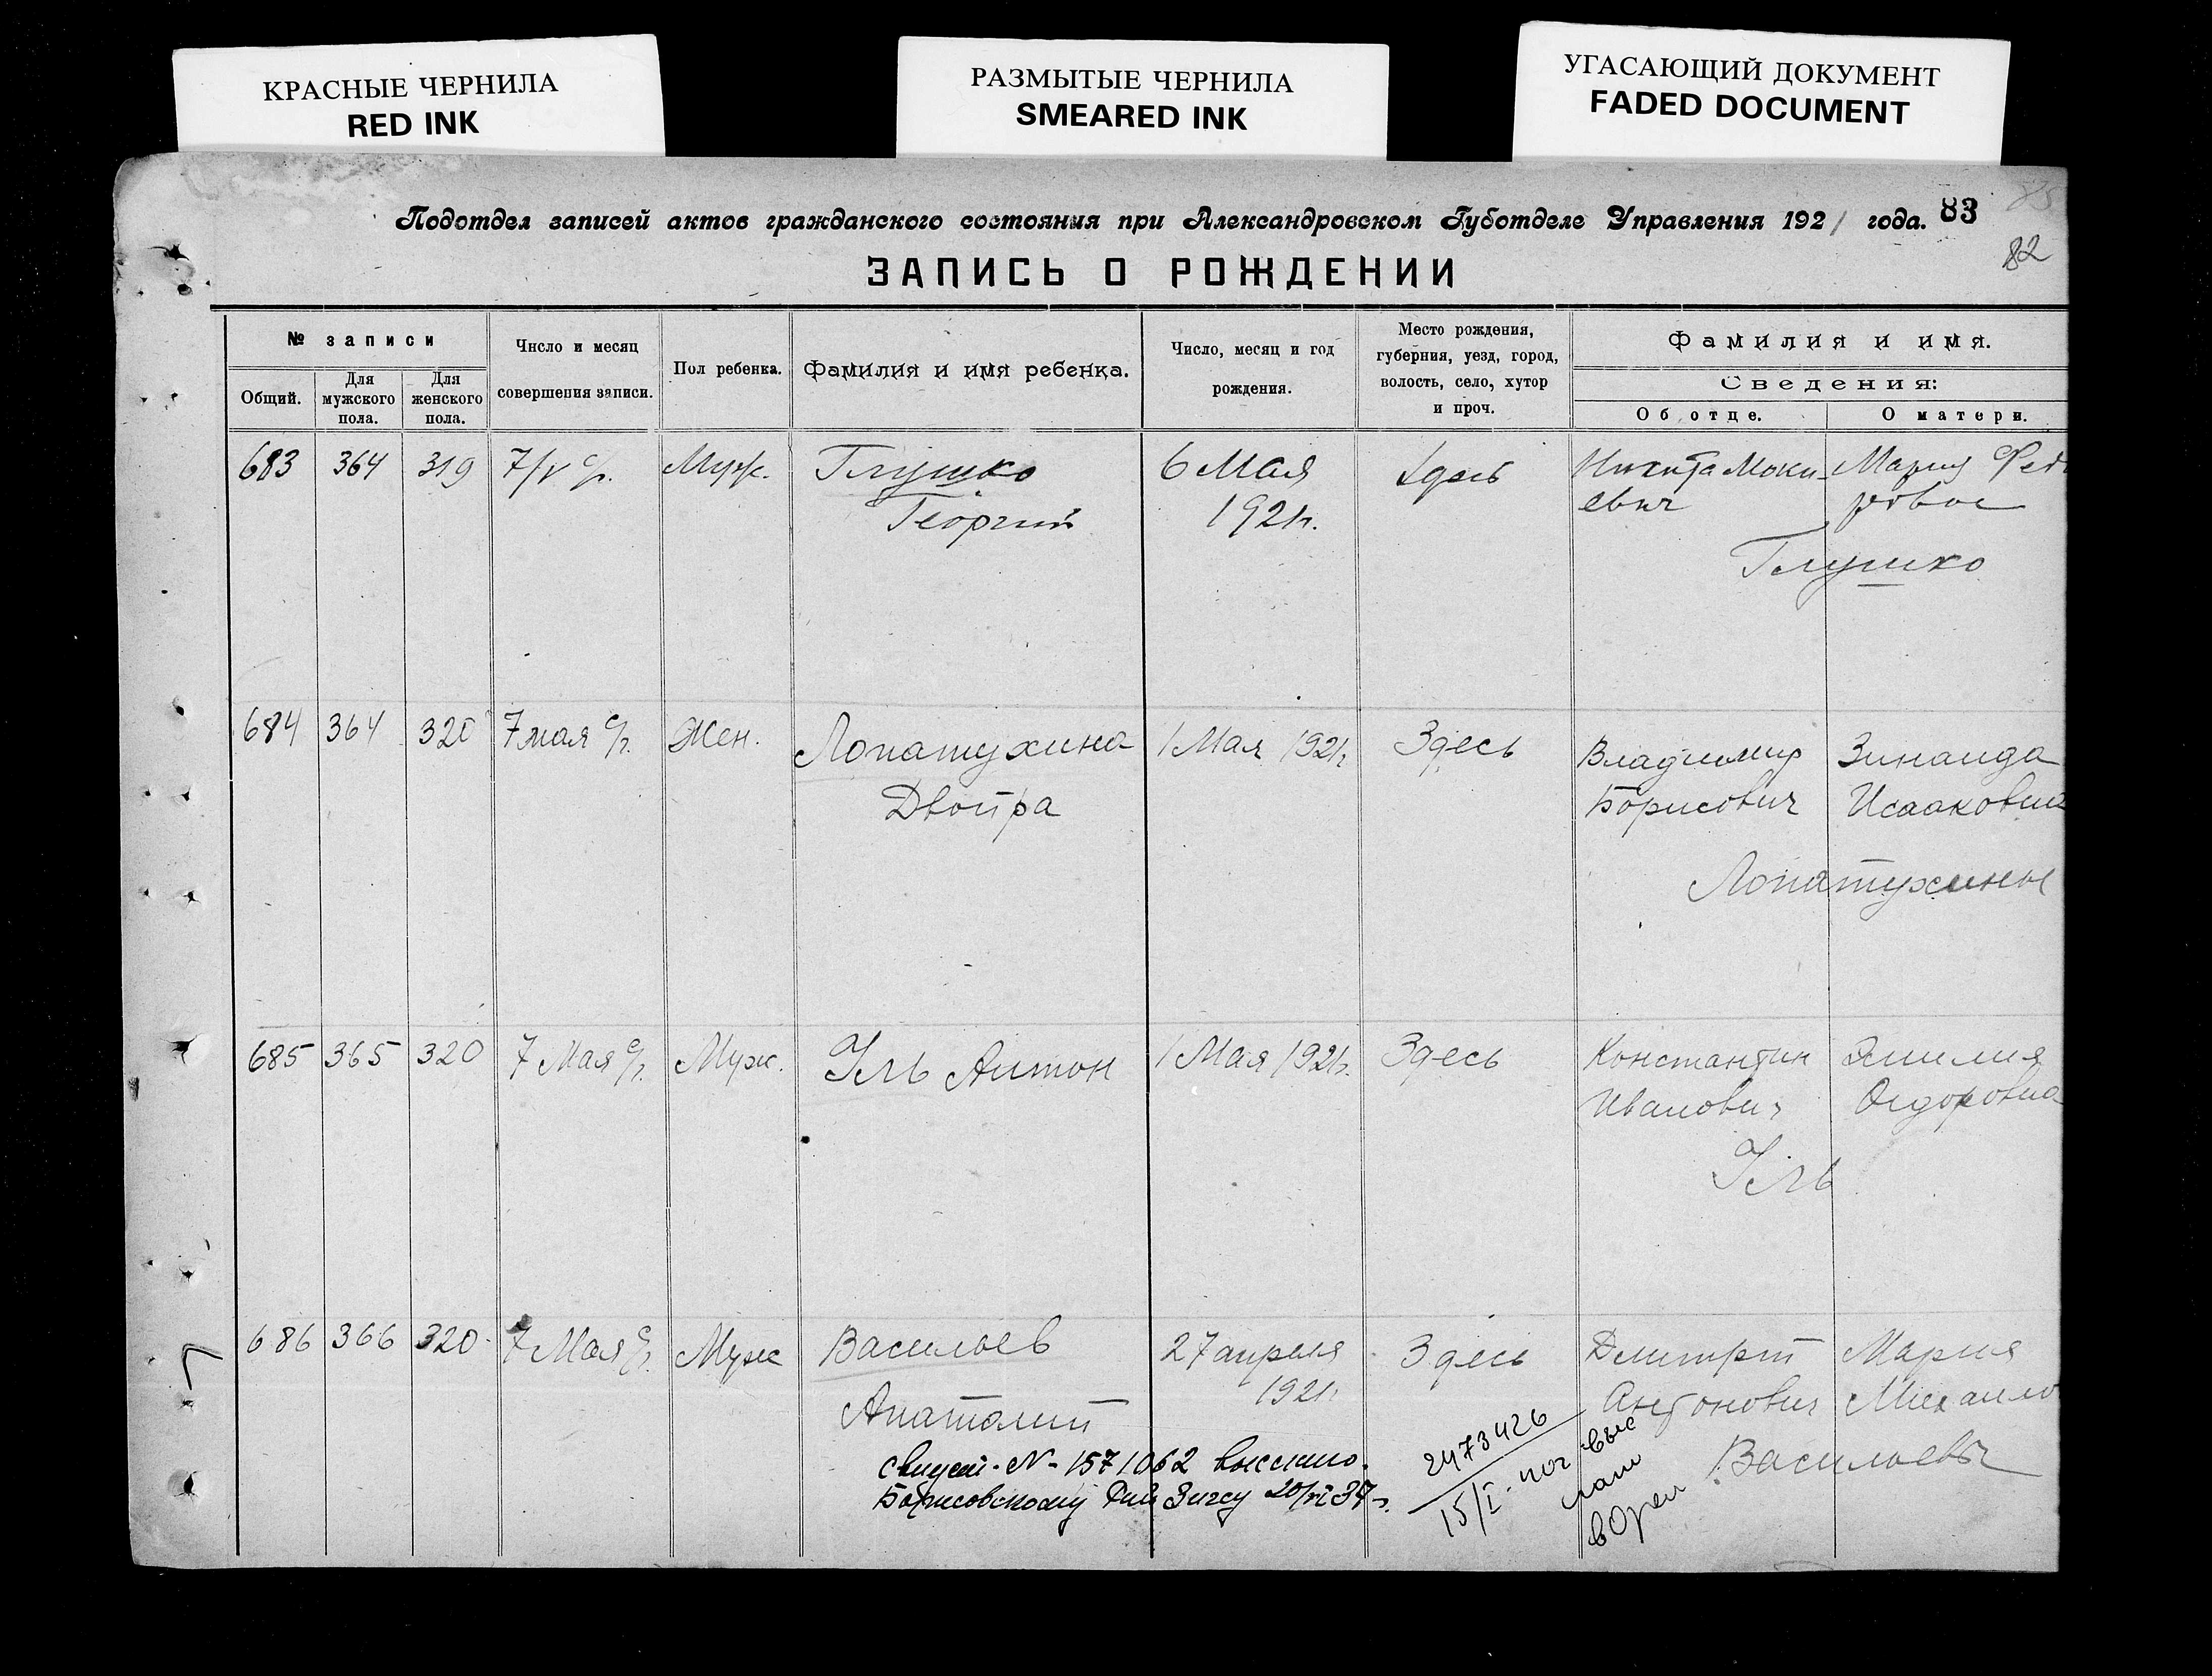 КРАСНЫЕ ЧЕРНИЛА
RED INK
РАЗМЫТЫЕ ЧЕРНИЛА
SMEARED INK
УГАСАЮЩИЙ ДОКУМЕНТ
FADED DOCUMENT
Подотдел записей актов гражданского состояния при Александровском Губотделе Управления 1921 года. 83
82
ЗАПИСЬ О РОЖДЕНИИ
№ записи
Общий.
Для мужского пола.
Для женского пола.
Число и месяц совершения записи.
Пол ребенка.
Фамилия и имя ребенка.
Число, месяц и год рождения.
Место рождения, губерния, уезд, город, волость, село, хутор и проч.
Фамилия и имя.
Сведения:
Об отце.
О матери.
683 364 319 7/V с/г. Муж. Глушко 6 Мая Здесь Никита Моки- Мария Федо
Георгий 1921г. евич ровна
Глушко
684 364 320 7 мая с/г. Жен. Лопатухина 1 Мая 1921г Здесь Владимир Зинаида
Двойра Борисович Исааковна
Лопатухины
685 365 320 7 Мая с/г. Муж. Иль Антон 1 Мая 1921г. Здесь Константин Эмилия
Иванович Федоровна
Иль
686 366 320 7 Мая с/г. Муж Васильев 27 апреля Здесь Дмитрий Мария
Анатолий 1921г Антонович Михайло
Васильевы
свидет. N- 1571062 выслано
Борисовскому Загсу 20/VI 37г.
2473426
15/I
выс
лан
в Орел